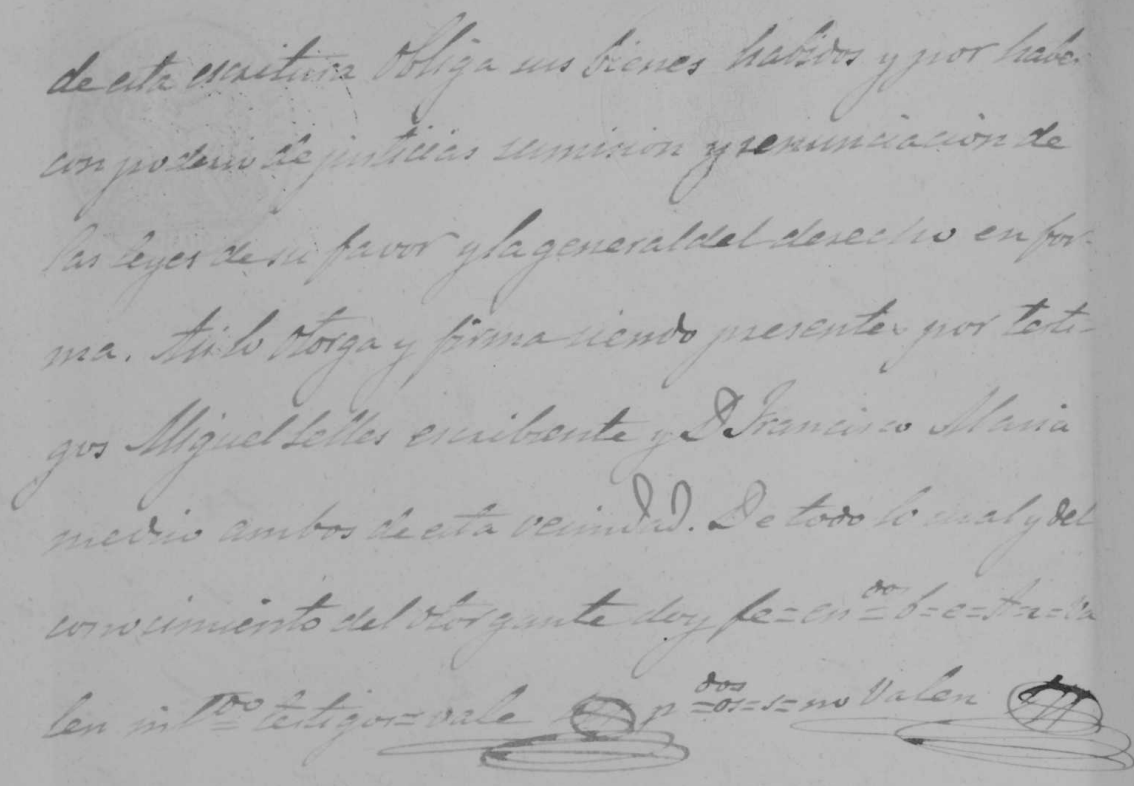 de esta escritura Obliga sus bienes habidos y por habe.
con poderio de justicias sumision y renunciacion de
las leyes de su favor y la general del derecho en for-
ma. Asi lo Otorga y firma siendo presentes por testi-
gos Miguel Selles escribiente y D. Francisco Maria
medio ambos de esta vecindad. De todo lo cual y del
conocimiento del Otorgante doy fe=en^dos=b=e=A=n=va
len int^do=testigos=vale p^dos=os=s=no Valen